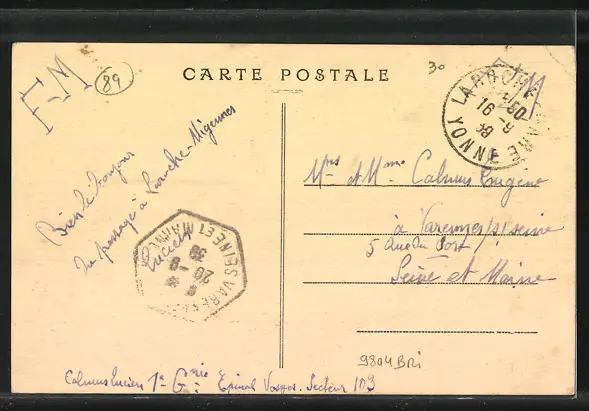 CARTE POSTALE
F-M
89
30
FM
LAROCHE GARE
16 -9
39
YONNE
Bien le bonjour
du passage à Laroche-Migennes
Lucien
SEINE ET MARNE
20 -9
39
Mr et Mme Calmus Eugène
à Varennes/s/seine
5 Rue du Port
Seine et Marne
9804 BRi
Calmus Lucien 1e Gnie Epinal Vosges. Secteur 103